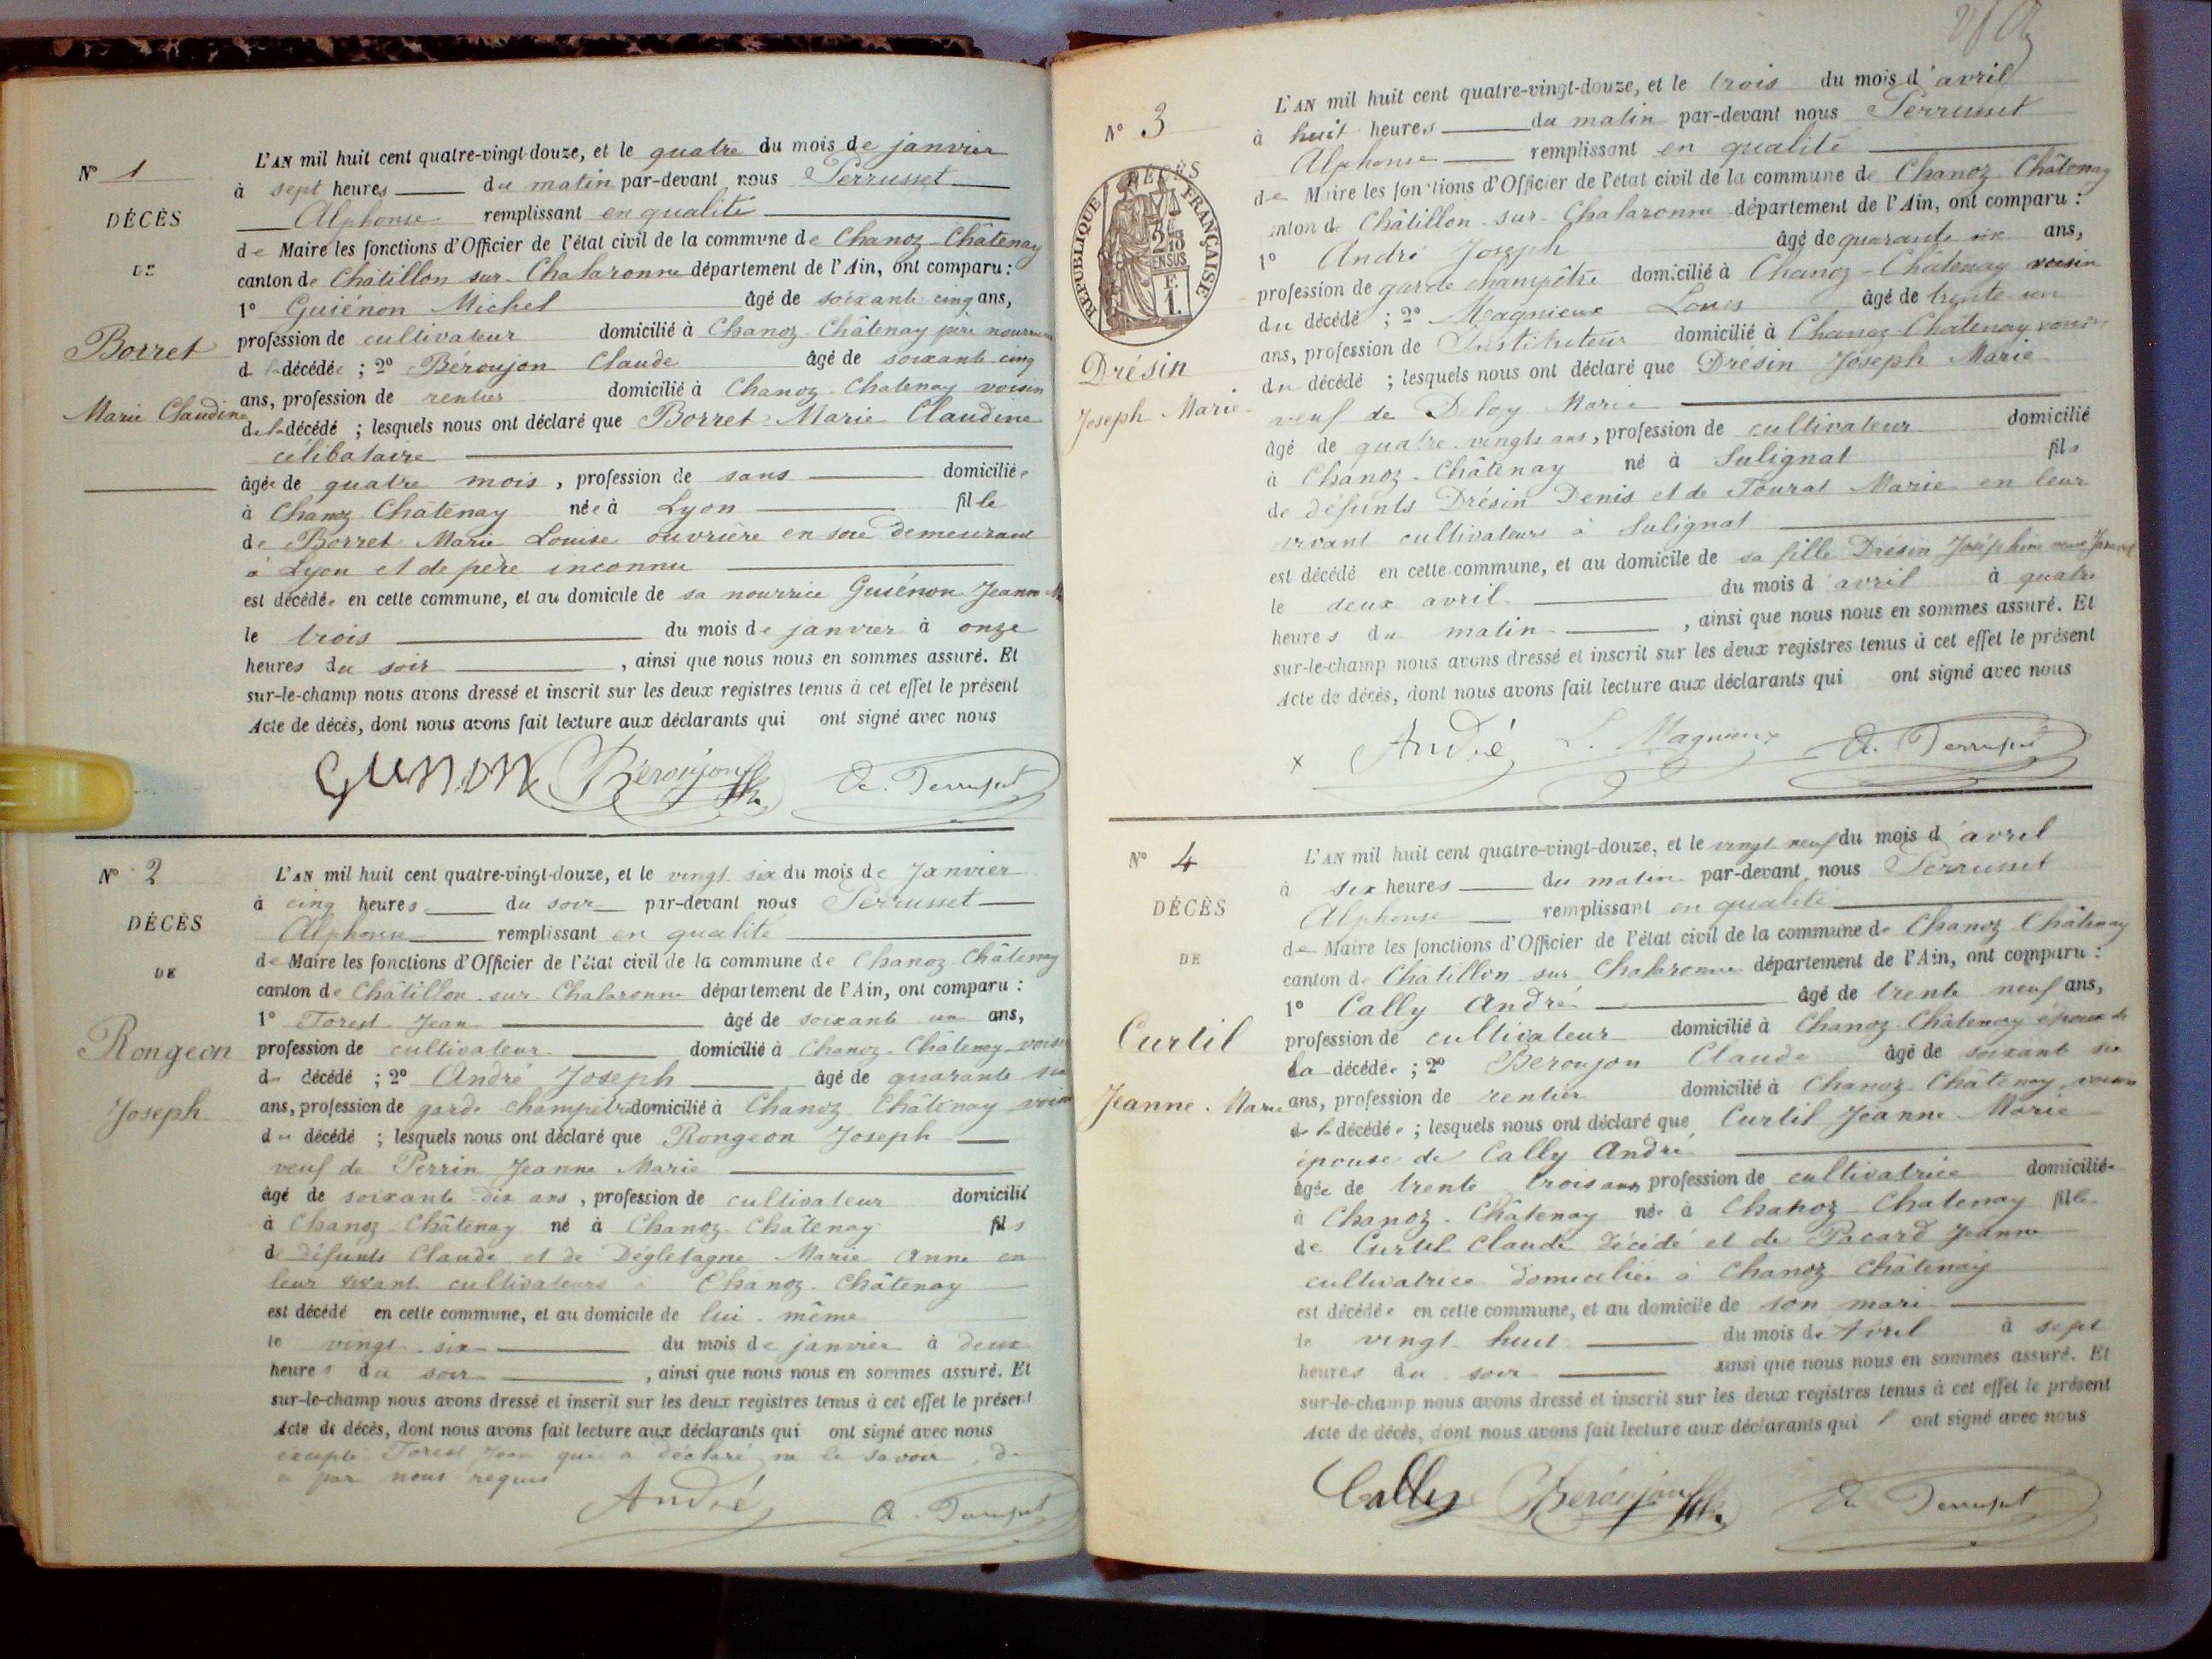 N° 1
DÉCÈS
DE
Borret
Marie Claudine
L'AN mil huit cent quatre-vingt-douze, et le quatre du mois de janvier
à sept heures du matin par-devant nous Perrusset
Alphonse remplissant en qualité
de Maire les fonctions d'Officier de l'état civil de la commune de Chanoz-Châtenay
canton de Châtillon sur Chalaronne département de l'Ain, ont comparu :
1° Guiénon Michel âgé de soixante cinq ans,
profession de cultivateur domicilié à Chanoz Châtenay père nourricier
d la décédée ; 2° Béroujon Claude âgé de soixante cinq
ans, profession de rentier domicilié à Chanoz-Chatenay voisin
de la décédé ; lesquels nous ont déclaré que Borret Marie Claudine
célibataire
âgée de quatre mois, profession de sans domiciliée
à Chanoz Châtenay née à Lyon fille
de Borret Marie Louise ouvrière en soie demeurant
à Lyon et de père inconnu
est décédée en cette commune, et au domicile de sa nourrice Guiénon Jeanne M
le trois du mois de janvier à onze
heures du soir, ainsi que nous nous en sommes assuré. Et
sur-le-champ nous avons dressé et inscrit sur les deux registres tenus à cet effet le présent
Acte de décès, dont nous avons fait lecture aux déclarants qui ont signé avec nous
Béroujon
N° 2
DÉCÈS
DE
Rongeon
Joseph
L'AN mil huit cent quatre-vingt-douze, et le vingt six du mois de Janvier
à cinq heures du soir par-devant nous Perrusset
Alphonse remplissant en qualité
de Maire les fonctions d'Officier de l'état civil de la commune de Chanoz-Châtenay
canton de Châtillon sur Chalaronne département de l'Ain, ont comparu :
1° Forest Jean âgé de soixante un ans,
profession de cultivateur domicilié à Chanoz-Châtenay voisin
du décédé ; 2° André Joseph âgé de quarante six
ans, profession de garde champêtre domicilié à Chanoz Châtenay voisin
du décédé ; lesquels nous ont déclaré que Rongeon Joseph
veuf de Perrin Jeanne Marie
âgé de soixante dix ans, profession de cultivateur domicilié
à Chanoz Châtenay né à Chanoz-Châtenay fils
de défunts Claude et de Dégletagne Marie Anne en
leur vivant cultivateurs à Chanoz-Châtenay
est décédé en cette commune, et au domicile de lui-même
le vingt-six du mois de janvier à deux
heures du soir, ainsi que nous nous en sommes assuré. Et
sur-le-champ nous avons dressé et inscrit sur les deux registres tenus à cet effet le présent
Acte de décès, dont nous avons fait lecture aux déclarants qui ont signé avec nous
excepté Forest Jean qui a déclaré ne le savoir, de
ce par nous requis
André
N° 3
DÉCÈS
RÉPUBLIQUE FRANÇAISE
Drésin
Joseph Marie
L'AN mil huit cent quatre-vingt-douze, et le trois du mois d'avril
à huit heures du matin par-devant nous Perrusset
Alphonse remplissant en qualité
de Maire les fonctions d'Officier de l'état civil de la commune de Chanoz Châtenay
canton de Châtillon-sur-Chalaronne département de l'Ain, ont comparu :
1° André Joseph âgé de quarante six ans,
profession de garde champêtre domicilié à Chanoz-Châtenay voisin
du décédé ; 2° Magnieux Louis âgé de trente-un
ans, profession de Instituteur domicilié à Chanoz-Châtenay voisin
du décédé ; lesquels nous ont déclaré que Drésin Joseph Marie
veuf de Deloy Marie
âgé de quatre-vingts ans, profession de cultivateur domicilié
à Chanoz-Châtenay né à Sulignat fils
de défunts Drésin Denis et de Tourat Marie en leur
vivant cultivateurs à Sulignat
est décédé en cette commune, et au domicile de sa fille Drésin Joséphine
le deux avril du mois d'avril à quatre
heures du matin, ainsi que nous nous en sommes assuré. Et
sur-le-champ nous avons dressé et inscrit sur les deux registres tenus à cet effet le présent
Acte de décès, dont nous avons fait lecture aux déclarants qui ont signé avec nous
André L. Magnieux
N° 4
DÉCÈS
DE
Curtil
Jeanne-Marie
L'AN mil huit cent quatre-vingt-douze, et le vingt neuf du mois d'avril
à six heures du matin par-devant nous Perrusset
Alphonse remplissant en qualité
de Maire les fonctions d'Officier de l'état civil de la commune de Chanoz Châtenay
canton de Châtillon sur Chalaronne département de l'Ain, ont comparu :
1° Cally André âgé de trente neuf ans,
profession de cultivateur domicilié à Chanoz-Châtenay époux de
la décédée ; 2° Beroujon Claude âgé de soixante six
ans, profession de rentier domicilié à Chanoz Châtenay voisin
de la décédée ; lesquels nous ont déclaré que Curtil Jeanne Marie
épouse de Cally André
âgée de trente trois ans profession de cultivatrice domiciliée
à Chanoz-Châtenay née à Chanoz-Chatenay fille
de Curtil Claude décédé et de Pacard Jeanne
cultivatrice domiciliée à Chanoz Châtenay
est décédée en cette commune, et au domicile de son mari
le vingt huit du mois d'Avril à sept
heures du soir ainsi que nous nous en sommes assuré. Et
sur-le-champ nous avons dressé et inscrit sur les deux registres tenus à cet effet le présent
Acte de décès, dont nous avons fait lecture aux déclarants qui ont signé avec nous
Cally Béroujon